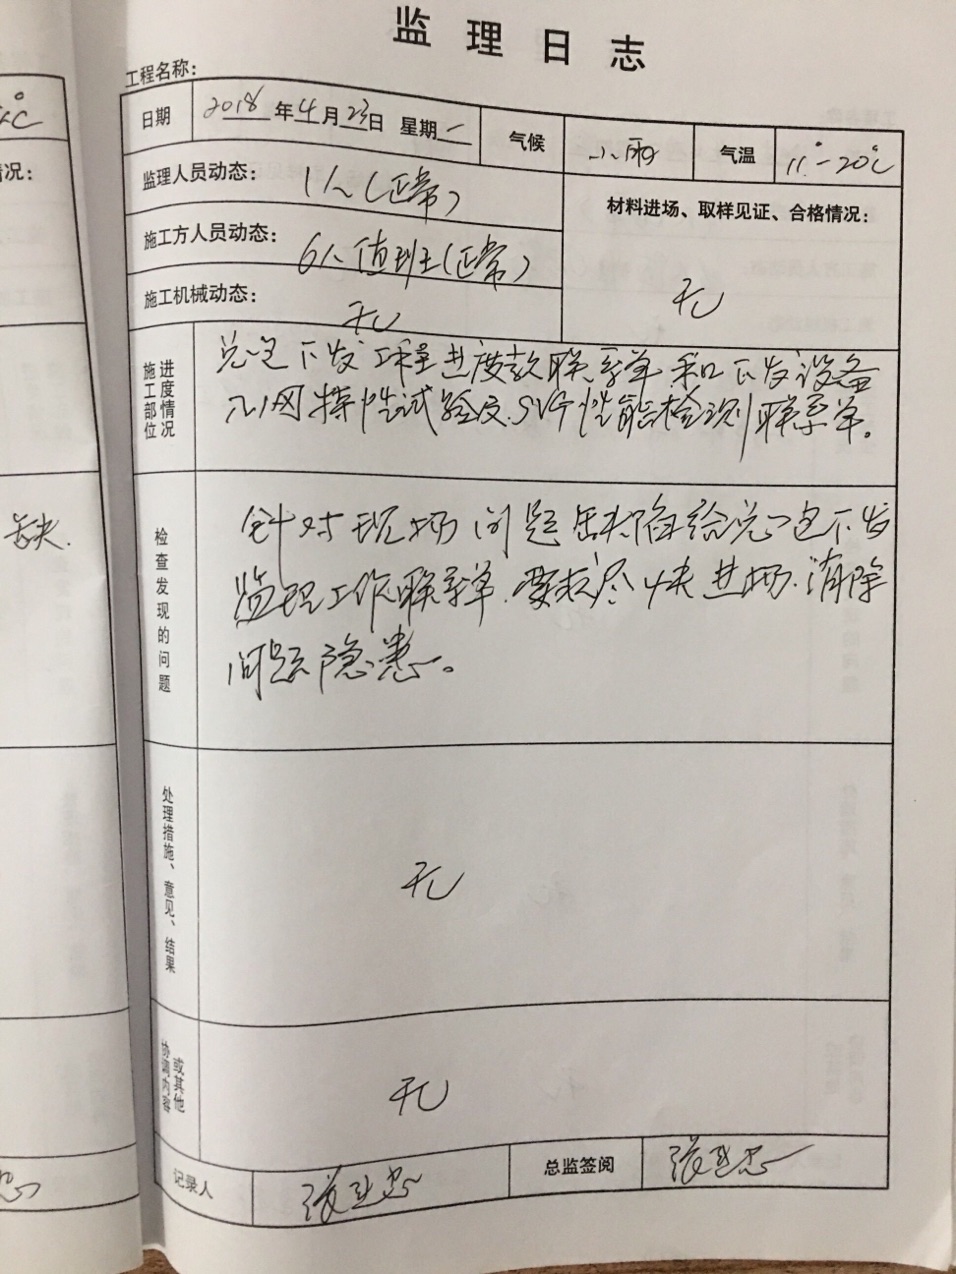 监理日志
工程名称：
日期 2018年4月23日 星期一 气候 小雨 气温 11°-20℃
监理人员动态： 1人（正常）
材料进场、取样见证、合格情况：
施工方人员动态： 6人值班（正常）
施工机械动态： 无
无
施工部位
进度情况
总包下发工程进度款联系单和下发设备
入网特性试验及SVG性能检测联系单。
检查发现的问题
针对现场问题缺陷给总包下发
监理工作联系单，要求尽快进场，消除
问题隐患。
处理措施、意见、结果
无
协调内容
或其他
无
记录人
总监签阅
况：
缺.